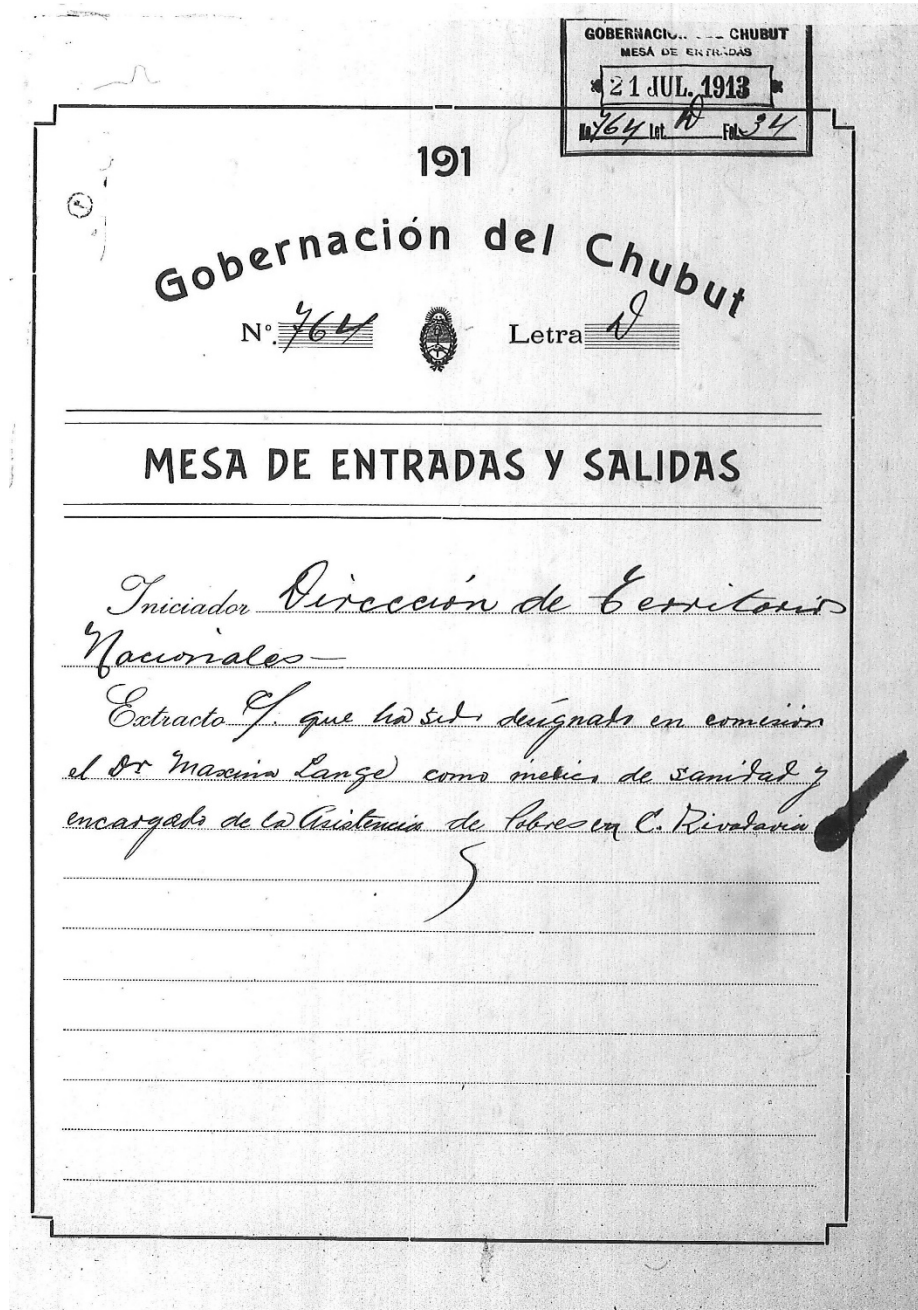 GOBERNACI... DEL CHUBUT
MESA DE ENTRADAS
21 JUL. 1913
No. 764 Let. D Fol. 34
191
Gobernación del Chubut
N°. 764 Letra D
MESA DE ENTRADAS Y SALIDAS
Iniciador Dirección de Territorios
Nacionales—
Extracto C/. que ha sido designado en comisión
el Dr Maximo Lange como medico de sanidad y
encargado de la Asistencia de Pobres en C. Rivadavia